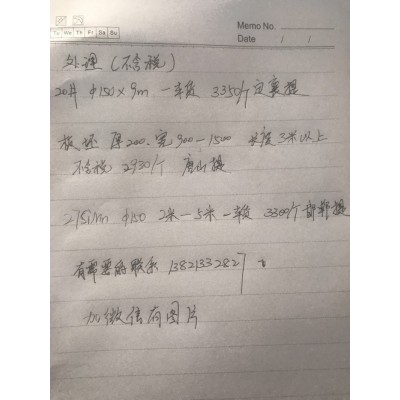 Memo No.
Tu We Th Fr Sa Su
Date / /
处理（不含税）
20# φ150×9m 一车货 3350/个 提
板坯 厚200. 宽900—1500 长度3米以上
不含税 2930/个 唐山提
27SiMn φ150 2米—5米 一车货 3300/个 邯郸提
有需要的联系 13821332827
加微信有图片